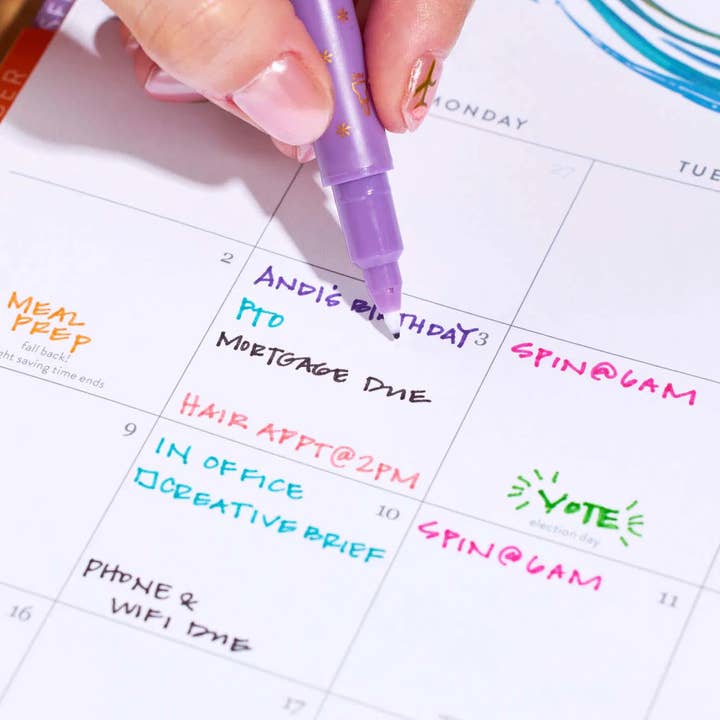 MONDAY
TUE
27
2
MEAL
PREP
fall back!
ght saving time ends
3
ANDI'S BIRTHDAY
PTO
MORTGAGE DUE
HAIR APPT@2PM
SPIN@6AM
VOTE
election day
9
10
IN OFFICE
CREATIVE BRIEF
PHONE &
WIFI DUE
11
SPIN@6AM
16
17